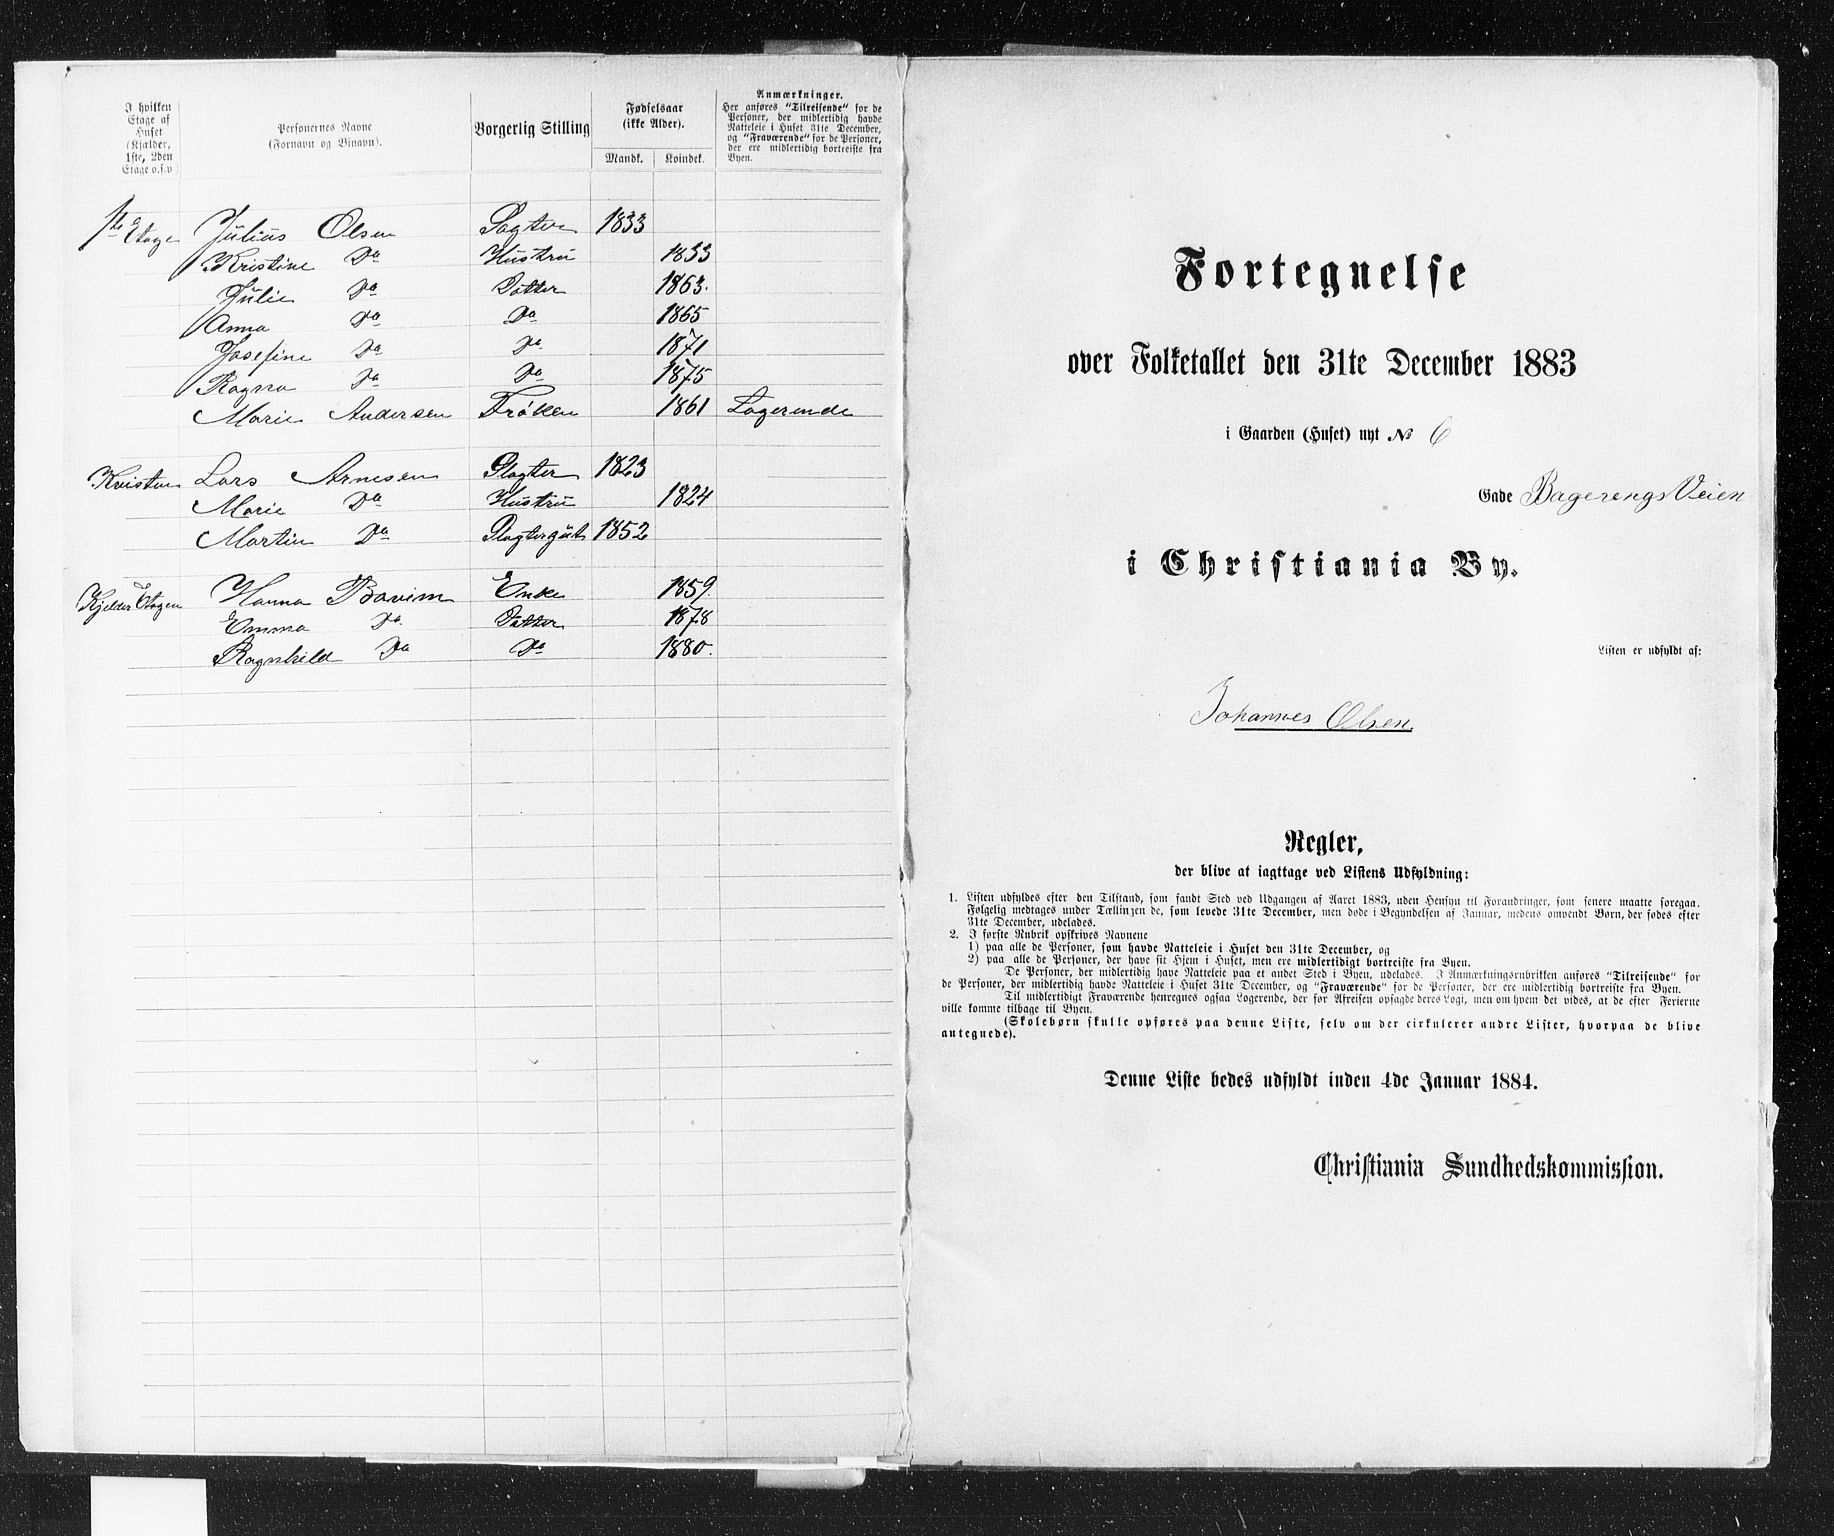 I hvilken
Etage af
Huset
(Kjælder,
1ste, 2den
Etage o.s.v)
Personernes Navne
(Fornavn og Binavn).
Borgerlig Stilling
Fødselsaar
(ikke Alder).
Mandk. Kvindek.
Anmærkninger.
Her anføres "Tilreisende" for de
Personer, der midlertidig havde
Natteleie i Huset 31te December,
og "Fraværende" for de Personer,
der ere midlertidig bortreiste fra
Byen.
1ste Etage Julius Olsen Slagter 1833
Kristine Do Hustru 1833
Julie Do Datter 1863.
Anna Do Do 1865
Josefine Do Do 1871
Ragna Do Do 1875
Marie Andersen Frøken 1861 Logerende
Kvisten Lars Arnesen Slagter 1823
Marie Do Hustru 1824
Martin Do Slagtergut 1852
Kjelder Etagen Hanna Enke 1859.
Emma Do Datter 1878
Ragnhild Do Do 1880.
Fortegnelse
over Folketallet den 31te December 1883
i Gaarden (Huset) nyt No 6
Gade Bagerengs Veien
i Christiania By.
Listen er udfyldt af:
Johannes Olsen.
Regler,
der blive at iagttage ved Listens Udfyldning:
1. Listen udfyldes efter den Tilstand, som fandt Sted ved Udgangen af Aaret 1883, uden Hensyn til Forandringer, som senere maatte foregaa.
Følgelig medtages under Tællingen de, som levede 31te December, men døde i Begyndelsen af Januar, medens omvendt Børn, der fødes efter
31te December, udelades.
2. I første Rubrik opskrives Navnene
1) paa alle de Personer, som havde Natteleie i Huset den 31te December, og
2) paa alle de Personer, der have sit Hjem i Huset, men ere midlertidigt bortreiste fra Byen.
De Personer, der midlertidig have Natteleie paa et andet Sted i Byen, udelades. I Anmærkningsrubrikken anføres "Tilreisende" for
de Personer, der midlertidig havde Natteleie i Huset 31te December, og "Fraværende" for de Personer, der ere midlertidig bortreiste fra Byen.
Til midlertidigt Fraværende henregnes ogsaa Logerende, der før Afreisen opsagde deres Logi, men om hvem det vides, at de efter Ferierne
ville komme tilbage til Byen.
(Skolebørn skulle opføres paa denne Liste, selv om der cirkulerer andre Lister, hvorpaa de blive
antegnede).
Denne Liste bedes udfyldt inden 4de Januar 1884.
Christiania Sundhedskommission.